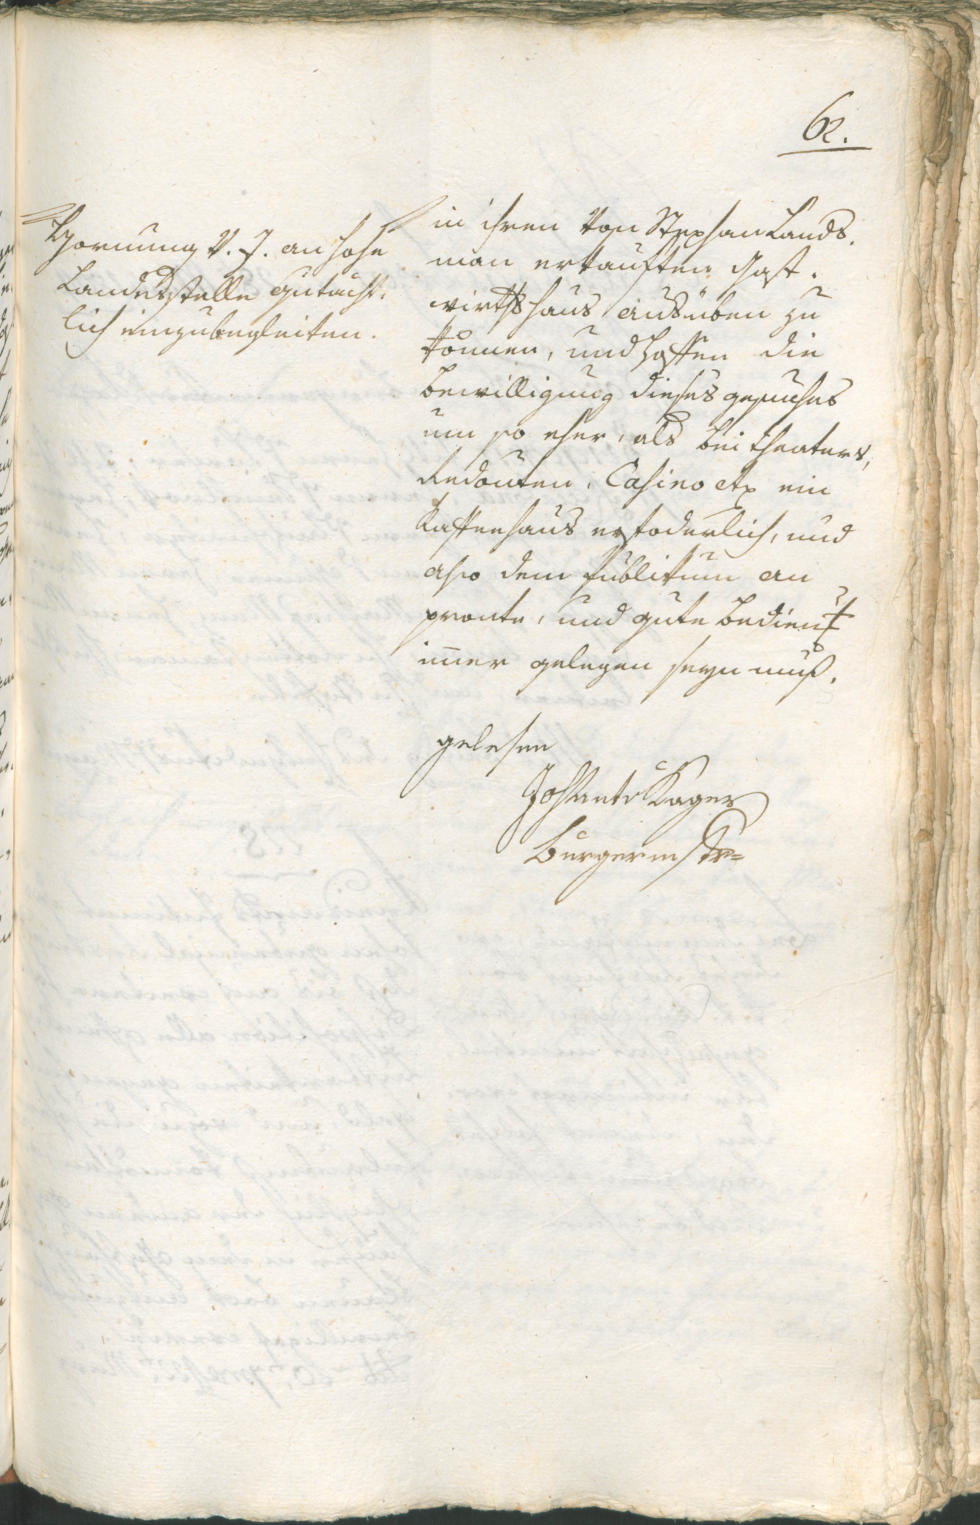 62.
Hornung v. J. an hohe
Landesstelle gutächt-
lich einzubegleiten.
in ihren von Stephan Lands-
man erkauften Gast-
wirthshaus ausüben zu
können, und hoffen die
Bewilligung dieses gesuches
um so eher, als bei theaters,
Redouten, Casino etc ein
Kaffeehaus erfoderlich, und
also dem Publikum an
promte, und gute bedienung
im̅er gelegen seyn muß.
gelesen
Joh Ant v Kager
Burgermstr